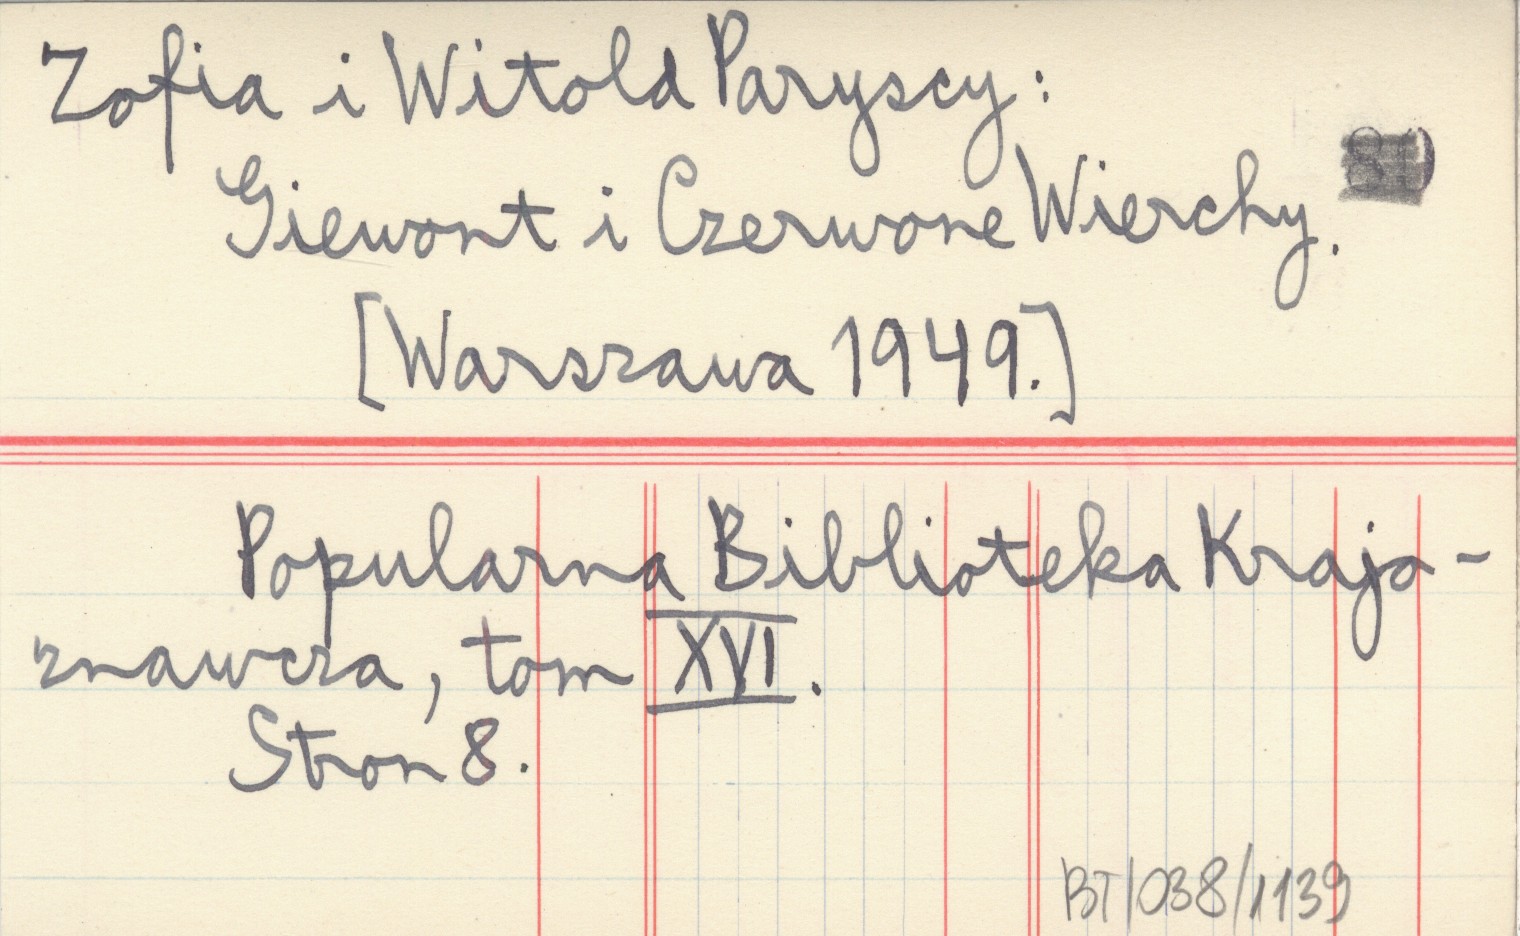 Zofia i Witold Paryscy:
Giewont i Czerwone Wierchy.
[Warszawa 1949.]
Popularna Biblioteka Krajo-
znawcza, tom XVI.
Stron 8.
BT/038/1139